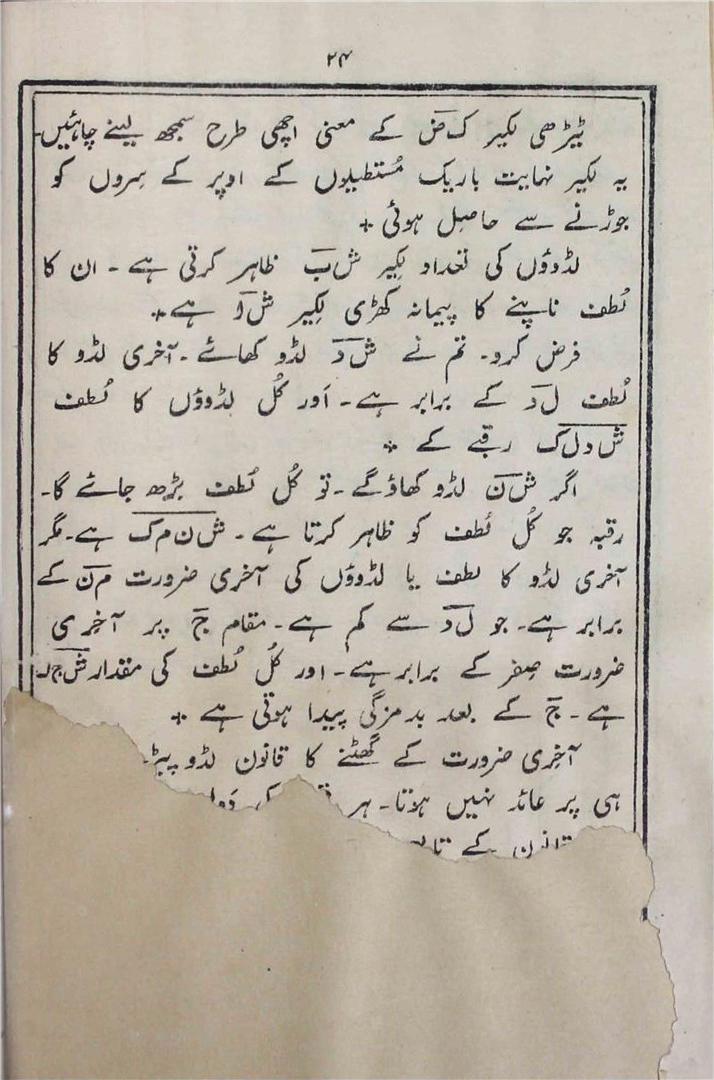 ۲۴
ٹیڑھی لکیر ک ض کے معنی اچھی طرح سمجھ لینے چاہئیں۔
یہ لکیر نہایت باریک مُستطیلوں کے اوپر کے سِروں کو
جوڑنے سے حاصِل ہوئی +
لڈوؤں کی تعداد لکیر ش ب ظاہر کرتی ہے ۔ ان کا
لُطف ناپنے کا پیمانہ کھڑی لکیر ش ا ہے +
فرض کرو۔ تم نے ش د لڈو کھائے ۔ آخری لڈو کا
لُطف ل د کے برابر ہے۔ اَور کُل لڈوؤں کا لُطف
ش د ل ک رقبے کے +
اگر ش ن لڈو کھاؤ گے ۔ تو کُل لُطف بڑھ جائے گا۔
رقبہ جو کُل لُطف کو ظاہر کرتا ہے ۔ ش ن م ک ہے۔ مگر
آخری لڈو کا لطف یا لڈوؤں کی آخری ضرورت م ن کے
برابر ہے۔ جو ل د سے کم ہے ۔ مقام ج پر آخِری
ضرورت صِفر کے برابر ہے۔ اور کُل لُطف کی مقدار ش ج ک
ہے ۔ ج کے بعد بدمزگی پیدا ہوتی ہے +
آخِری ضرورت کے گھٹنے کا قانون لڈو
ہی پر عائد نہیں ہوتا۔ ہر کی
قانون کے